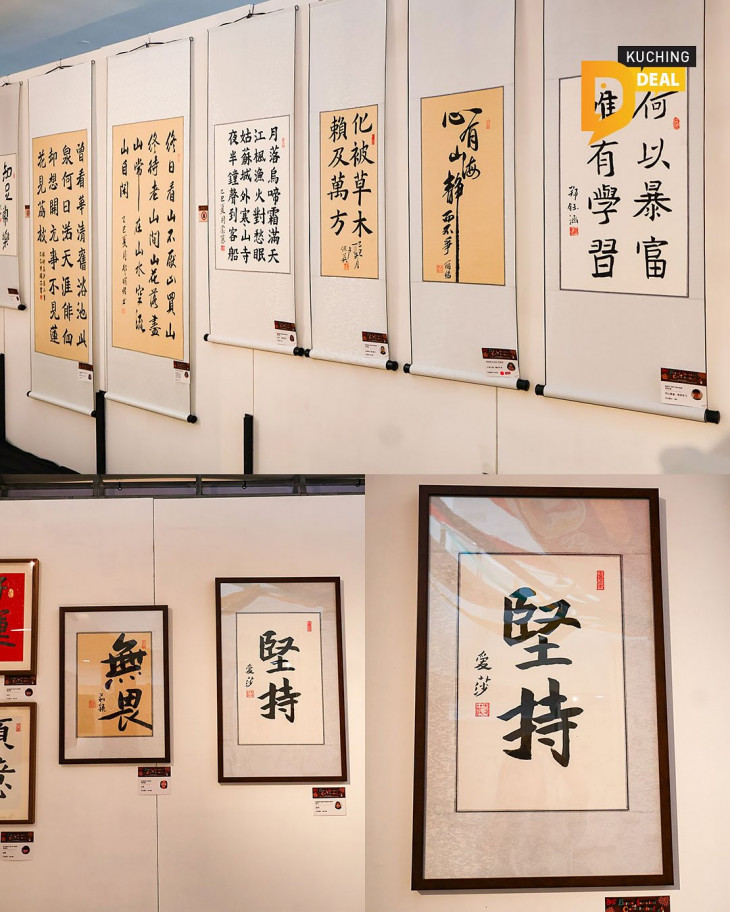 KUCHING
DEAL
知足常樂
曾看華清舊浴池此
泉何日落天涯徘徊
却想開元事不見蓮
花見荔枝
終日看山不厭山買山
終待老山間山花落盡
山常在山水空流
山自閑
乙巳夏月
月落烏啼霜滿天
江楓漁火對愁眠
姑蘇城外寒山寺
夜半鐘聲到客船
乙巳夏月
化被草木
賴及萬方
心有山海
靜而不爭
何以暴富
唯有學習
無畏
堅持
愛莎
堅持
愛莎